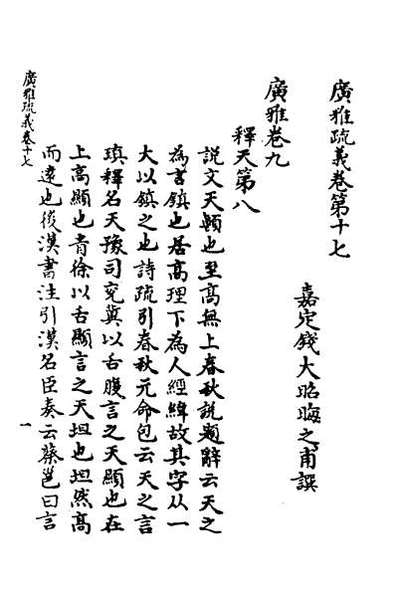 廣雅疏義卷第十七
嘉定錢大昭晦之甫譔
廣雅卷九
釋天第八
說文天顚也至高無上春秋說題辭云天之
為言鎮也居高理下為人經緯故其字从一
大以鎮之也詩疏引春秋元命包云天之言
瑱釋名天豫司兗冀以舌腹言之天顯也在
上高顯也青徐以舌顯言之天坦也坦然高
而遠也後漢書注引漢名臣奏云蔡邕曰言
廣雅疏義卷十七
一